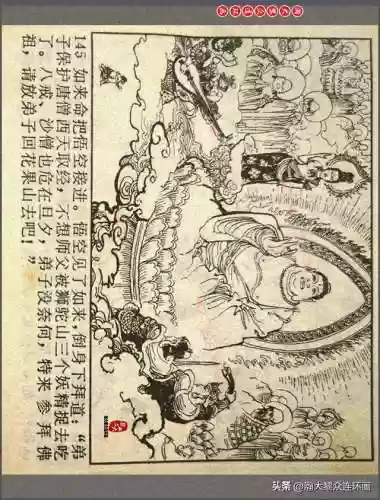 145 如来命把悟空接进。悟空见了如来，倒身下拜道：“弟
子保护唐僧西天取经，不想师父被狮驼山三个妖精捉去吃
了。八戒、沙僧也危在旦夕，弟子没奈何，特来参拜佛
祖，请放弟子回花果山去吧！”
头条 @瀚大黎众连环画